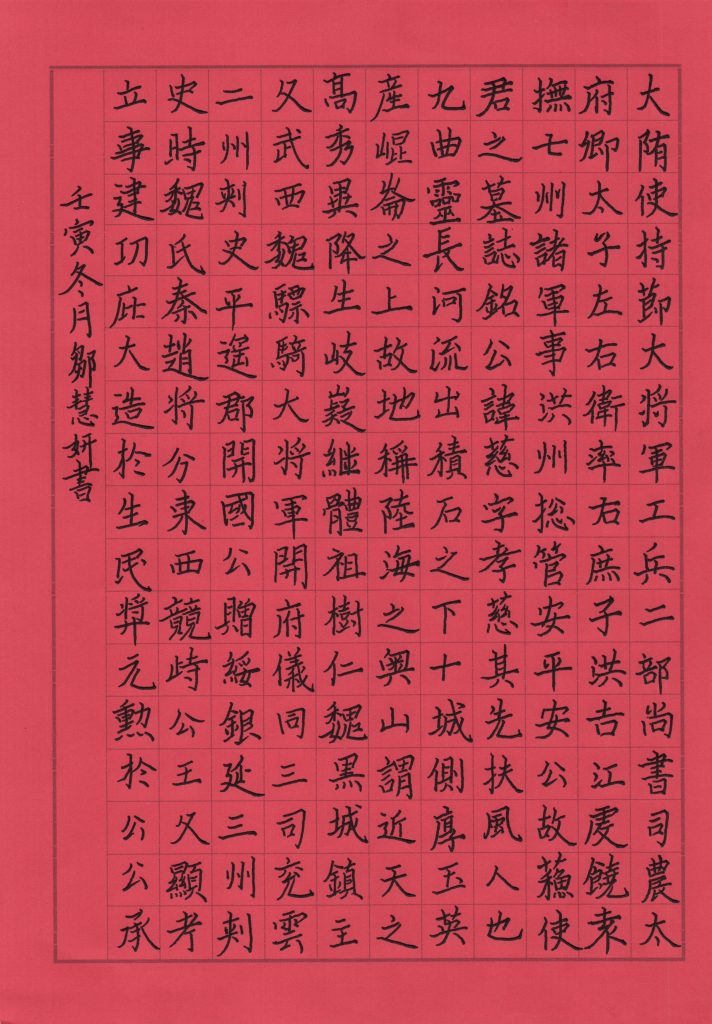 大隋使持節大將軍工兵二部尚書司農太
府卿太子左右衛率右庶子洪吉江虔饒袁
撫七州諸軍事洪州捴管安平安公故蘓使
君之墓誌銘公諱慈字孝慈其先扶風人也
九曲靈長河流出積石之下十城側厚玉英
産崐崙之上故地稱陸海之奥山謂近天之
髙秀異降生岐嶷継體祖樹仁魏黒城鎮主
父武西魏驃騎大將軍開府儀同三司兖雲
二州刺史平遥郡開國公贈綏銀延三州刺
史時魏氏秦趙将分東西競峙公王父顯考
立事建功庇大造於生民奨元勲於公公承
壬寅冬月鄒慧妍書